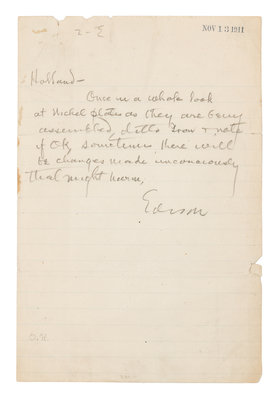 2-E
NOV 13 1911
Holland-
Once in a whole look
at Nickel plates as they are being
assembled, ditto Iron & note
if OK, sometimes there will
be changes made unconsciously
that might harm,
Edison
O.K.